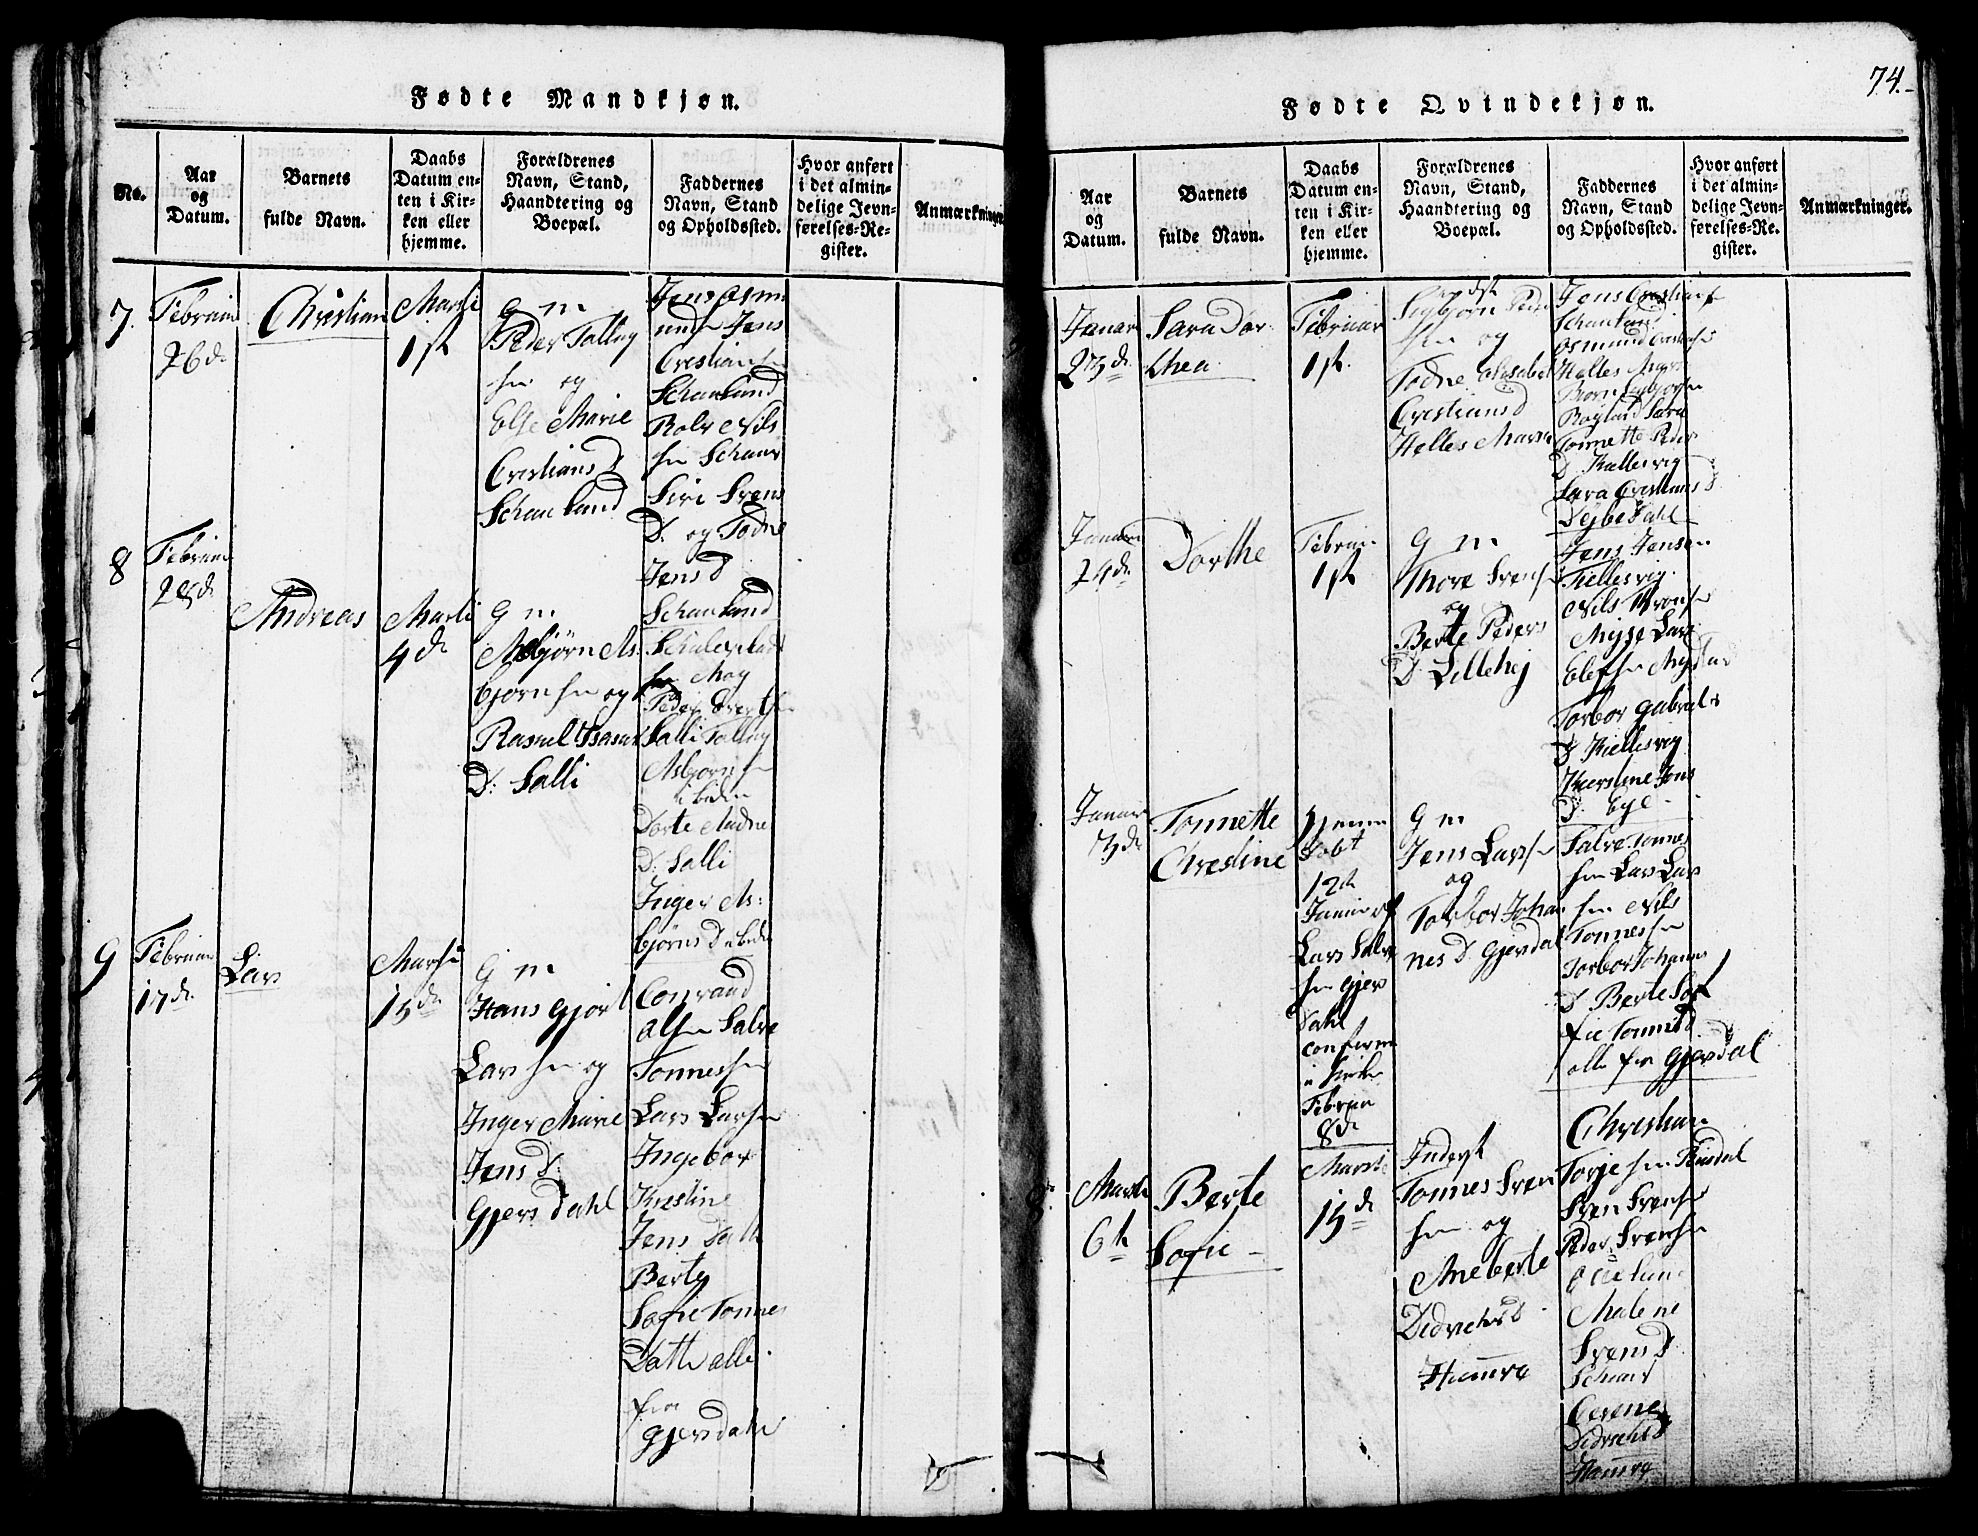 Fødte Mandkjøn.
No.
Aar
og
Datum.
Barnets
fulde Navn.
Daabs
Datum en-
ten i Kir-
ken eller
hjemme.
Forældrenes
Navn, Stand,
Haandtering og
Boepæl.
Faddernes
Navn, Stand
og Opholdssted.
Hvor anført
i det almin-
delige Jevn-
førelses-Re-
gister.
Anmærkninger
7.
Februar
26de
Christian
Marti
1st
G m
Peder Tallag
sen og
Else Marie
Cristians D
Schauland
Jens Osm
unds Jens
Crestiansen
Schauland
Rolv Nils
sen Schaar
Siri Svens
D. og Todne
Jens D
Schauland
8
Februar
28de
Andreas
Marti
4de
G m
Asbjørn As
bjørnsen og
Rasmel Isaachs
D. Salli
May
Peder
Salli Tallag
Asbjørnsen
ibiden
Dorte Andne
D. Salli
Inger As:
bjørns D ibiden
9
Februar
17de
Lars
Marsi
15de
G m
Hans Gjört
Larssen og
Inger Marie
Jens D.
Gjersdahl
Conraad
Olsen Salve
Tonnessen
Lars Larsen
Ingebor
Krestine
Jens Datt
Berte
Sofie Tonnes
Datte alle
fra
Gjersdahl
Fødte Qvindekjøn.
74.
Aar
og
Datum.
Barnets
fulde Navn.
Daabs
Datum en-
ten i Kir-
ken eller
hjemme.
Forældrenes
Navn, Stand,
Haandtering og
Boepæl.
Faddernes
Navn, Stand
og Opholdssted.
Hvor anført
i det almin-
delige Jevn-
førelses-Re-
gister.
Anmærkninger.
Januar
23de
Sara Dor
thea
Februar
1st.
Sigbjørn Peder
sen og
Todne Elisabet
Crestians D
Helles Marn
Jens Crestians
Schauland
Osmund
Helles
Bjørn Sigbjørn
Røyland Sara
Tonnette Peder
D. Kallesvig
Sara Crestians D
Dybedahl
Januar
24de
Dorthe
Februar
1st
G m
Thore Svens
og
Berte Peders
D. Lillehej
Jens Jensen
Kiellesvig
Nils
Lars
Torbor Gabriels
D. Kiellesvig
Jens
D. Eye
Januar
3de
Tonnette
Chrestine
Hjemme
Dobt
12te
Januar af
Lars Salve
sen Gjers
Dahl
confirm
i kirke
Februar
8de
G m
Jens Larsen
og
Torbor Johan
nes D. Gjersdal
Salve Tonnes
sen Lars Lars
sen Nils
Tonnessen
Torbor Johannes
D. Berte Sof
fie Tonnes D.
alle fra Gjersdal
Marti
6te
Berte
Sofie
Martii
15de
Inderst
Tonnes Sven
sen og
Aneberte
Didrichs D
Hamre
Christian
Torjesen
Sven Svensen
Peder Svensen
Malene
Svens D
Schaar
Cerene
Didrichs D
Hamre